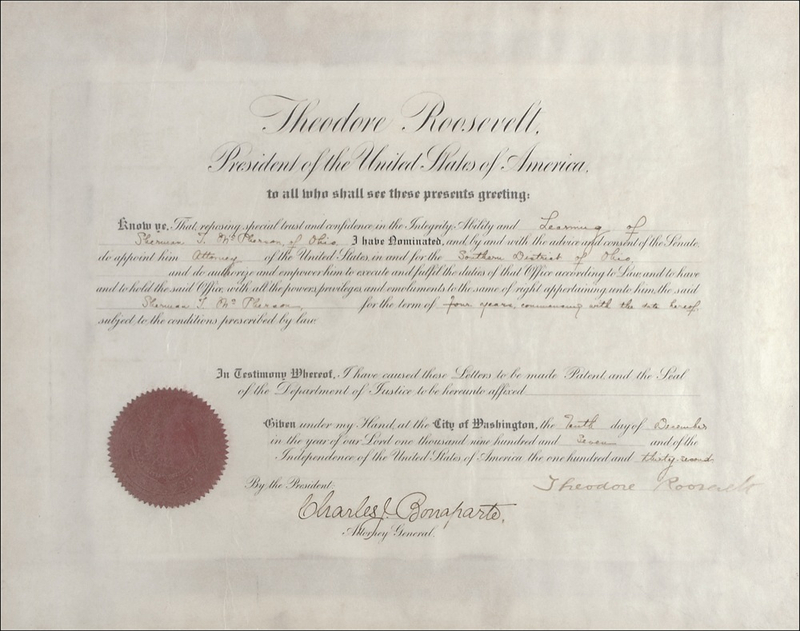 Theodore Roosevelt,
President of the United States of America,
to all who shall see these presents greeting:
Know ye, That, reposing special trust and confidence in the Integrity, Ability and Learning of
Sherman T. McPherson, of Ohio I have Nominated, and, by and with the advice and consent of the Senate,
do appoint him Attorney of the United States in and for the Southern District of Ohio,
and do authorize and empower him to execute and fulfil the duties of that Office according to Law, and to have
and to hold the said Office, with all the powers, privileges, and emoluments to the same of right appertaining, unto him, the said
Sherman T. McPherson for the term of four years, commencing with the date hereof,
subject to the conditions prescribed by law.
In Testimony Whereof, I have caused these Letters to be made Patent, and the Seal
of the Department of Justice to be hereunto affixed.
Given under my Hand, at the City of Washington, the Tenth day of December
in the year of our Lord one thousand nine hundred and seven and of the
Independence of the United States of America the one hundred and thirty second
Theodore Roosevelt
By the President:
Charles J. Bonaparte,
Attorney General.